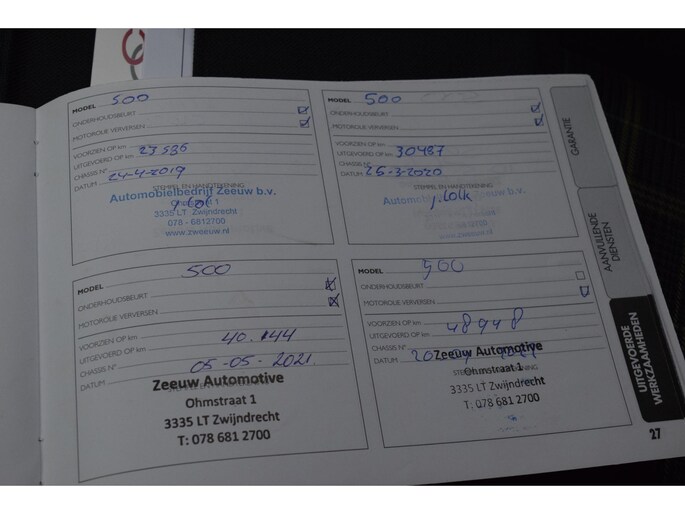 MODEL 500
ONDERHOUDSBEURT
MOTOROLIE VERVERSEN
VOORZIEN OP km
UITGEVOERD OP km 23596
CHASSIS N°
DATUM 24-4-2019
STEMPEL EN HANDTEKENING
Automobielbedrijf Zeeuw b.v.
3335 LT Zwijndrecht
078 - 6812700
www.zweeuw.nl
MODEL 500
ONDERHOUDSBEURT
MOTOROLIE VERVERSEN
VOORZIEN OP km
UITGEVOERD OP km 30487
CHASSIS N°
DATUM 25-3-2020
STEMPEL EN HANDTEKENING
Zeeuw b.v.
3335 LT Zwijndrecht
www.zweeuw.nl
MODEL 500
ONDERHOUDSBEURT
MOTOROLIE VERVERSEN
VOORZIEN OP km
UITGEVOERD OP km 40.144
CHASSIS N°
DATUM 05-05-2021
Zeeuw Automotive
Ohmstraat 1
3335 LT Zwijndrecht
T: 078 681 2700
MODEL 500
ONDERHOUDSBEURT
MOTOROLIE VERVERSEN
VOORZIEN OP km
UITGEVOERD OP km 48948
CHASSIS N°
DATUM
Zeeuw Automotive
Ohmstraat 1
3335 LT Zwijndrecht
T: 078 681 2700
GARANTIE
AANVULLENDE
DIENSTEN
UITGEVOERDE
WERKZAAMHEDEN
27